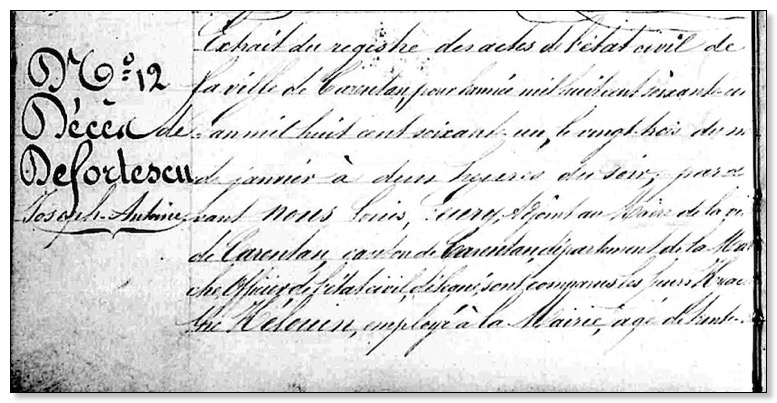 Extrait du registre des actes de l'état civil de
la ville de Carentan, pour l'année mil huit cent soixante un
L'an mil huit cent soixante un, le vingt trois du m
de janvier à deux heures du soir, par de
vant nous Louis, adjoint au Maire de la vi
de Carentan, canton de Carentan département de la Man
che Officier de l'état civil, délégué, sont comparus les sieurs
Hélouin, employé à la Mairie, âgé de trente
No. 12
Décès de
Defortescu
Joseph-Antoine